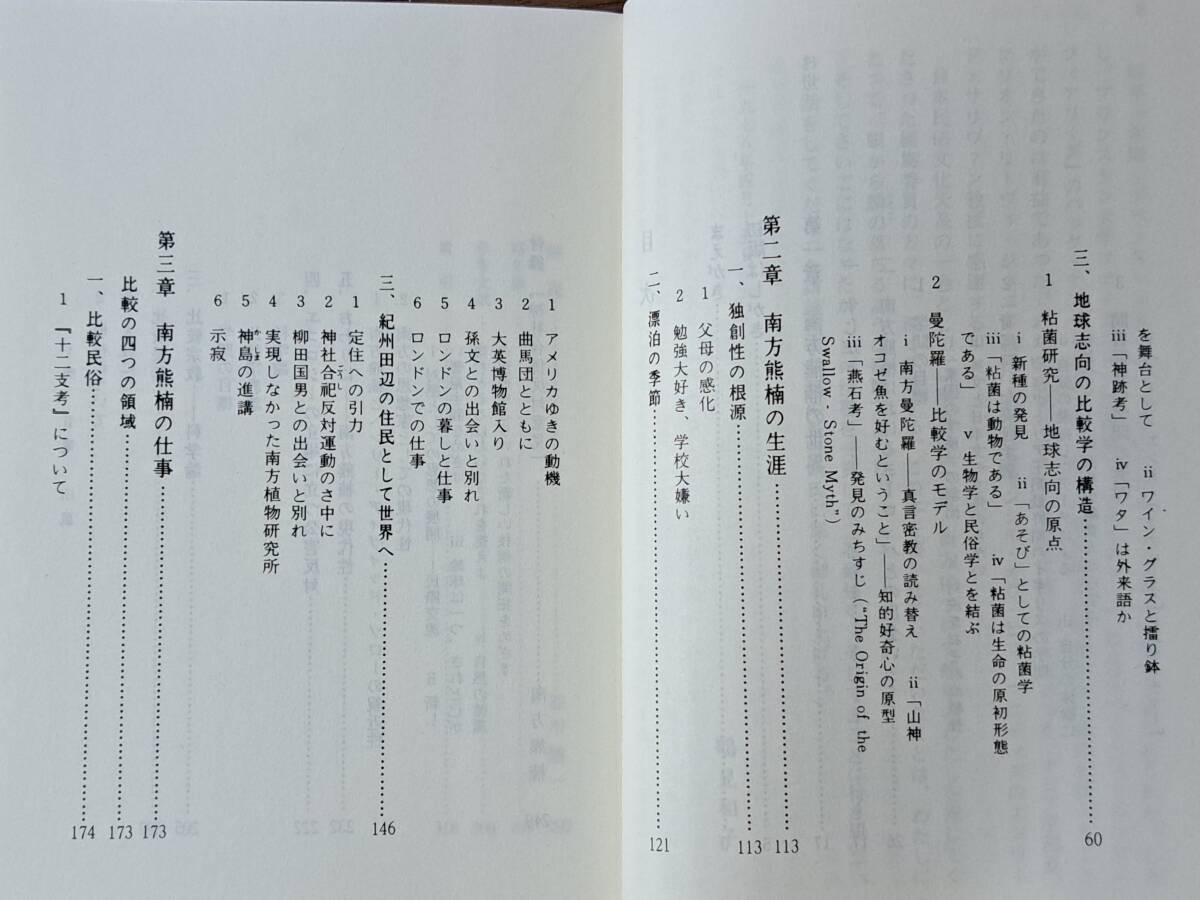 を舞台として　ⅱ ワイン・グラスと擂り鉢
ⅲ「神跡考」　ⅳ「ワタ」は外来語か
三、地球志向の比較学の構造……………………60
1　粘菌研究――地球志向の原点
ⅰ 新種の発見　ⅱ「あそび」としての粘菌学
ⅲ「粘菌は動物である」　ⅳ「粘菌は生命の原初形態
である」　ⅴ 生物学と民俗学とを結ぶ
2　曼陀羅――比較学のモデル
ⅰ 南方曼陀羅――真言密教の読み替え　ⅱ「山神
オコゼ魚を好むということ」――知的好奇心の原型
ⅲ「燕石考」――発見のみちすじ（“The Origin of the
Swallow-Stone Myth”）
第二章　南方熊楠の生涯……………………113
一、独創性の根源……………………113
1　父母の感化
2　勉強大好き、学校大嫌い
二、漂泊の季節……………………121
1　アメリカゆきの動機
2　曲馬団とともに
3　大英博物館入り
4　孫文との出会いと別れ
5　ロンドンの暮しと仕事
6　ロンドンでの仕事
三、紀州田辺の住民として世界へ……………………146
1　定住への引力
2　神社合祀反対運動のさ中に
3　柳田国男との出会いと別れ
4　実現しなかった南方植物研究所
5　神島の進講
6　示寂
第三章　南方熊楠の仕事……………………173
比較の四つの領域……………………173
一、比較民俗……………………174
1　『十二支考』について